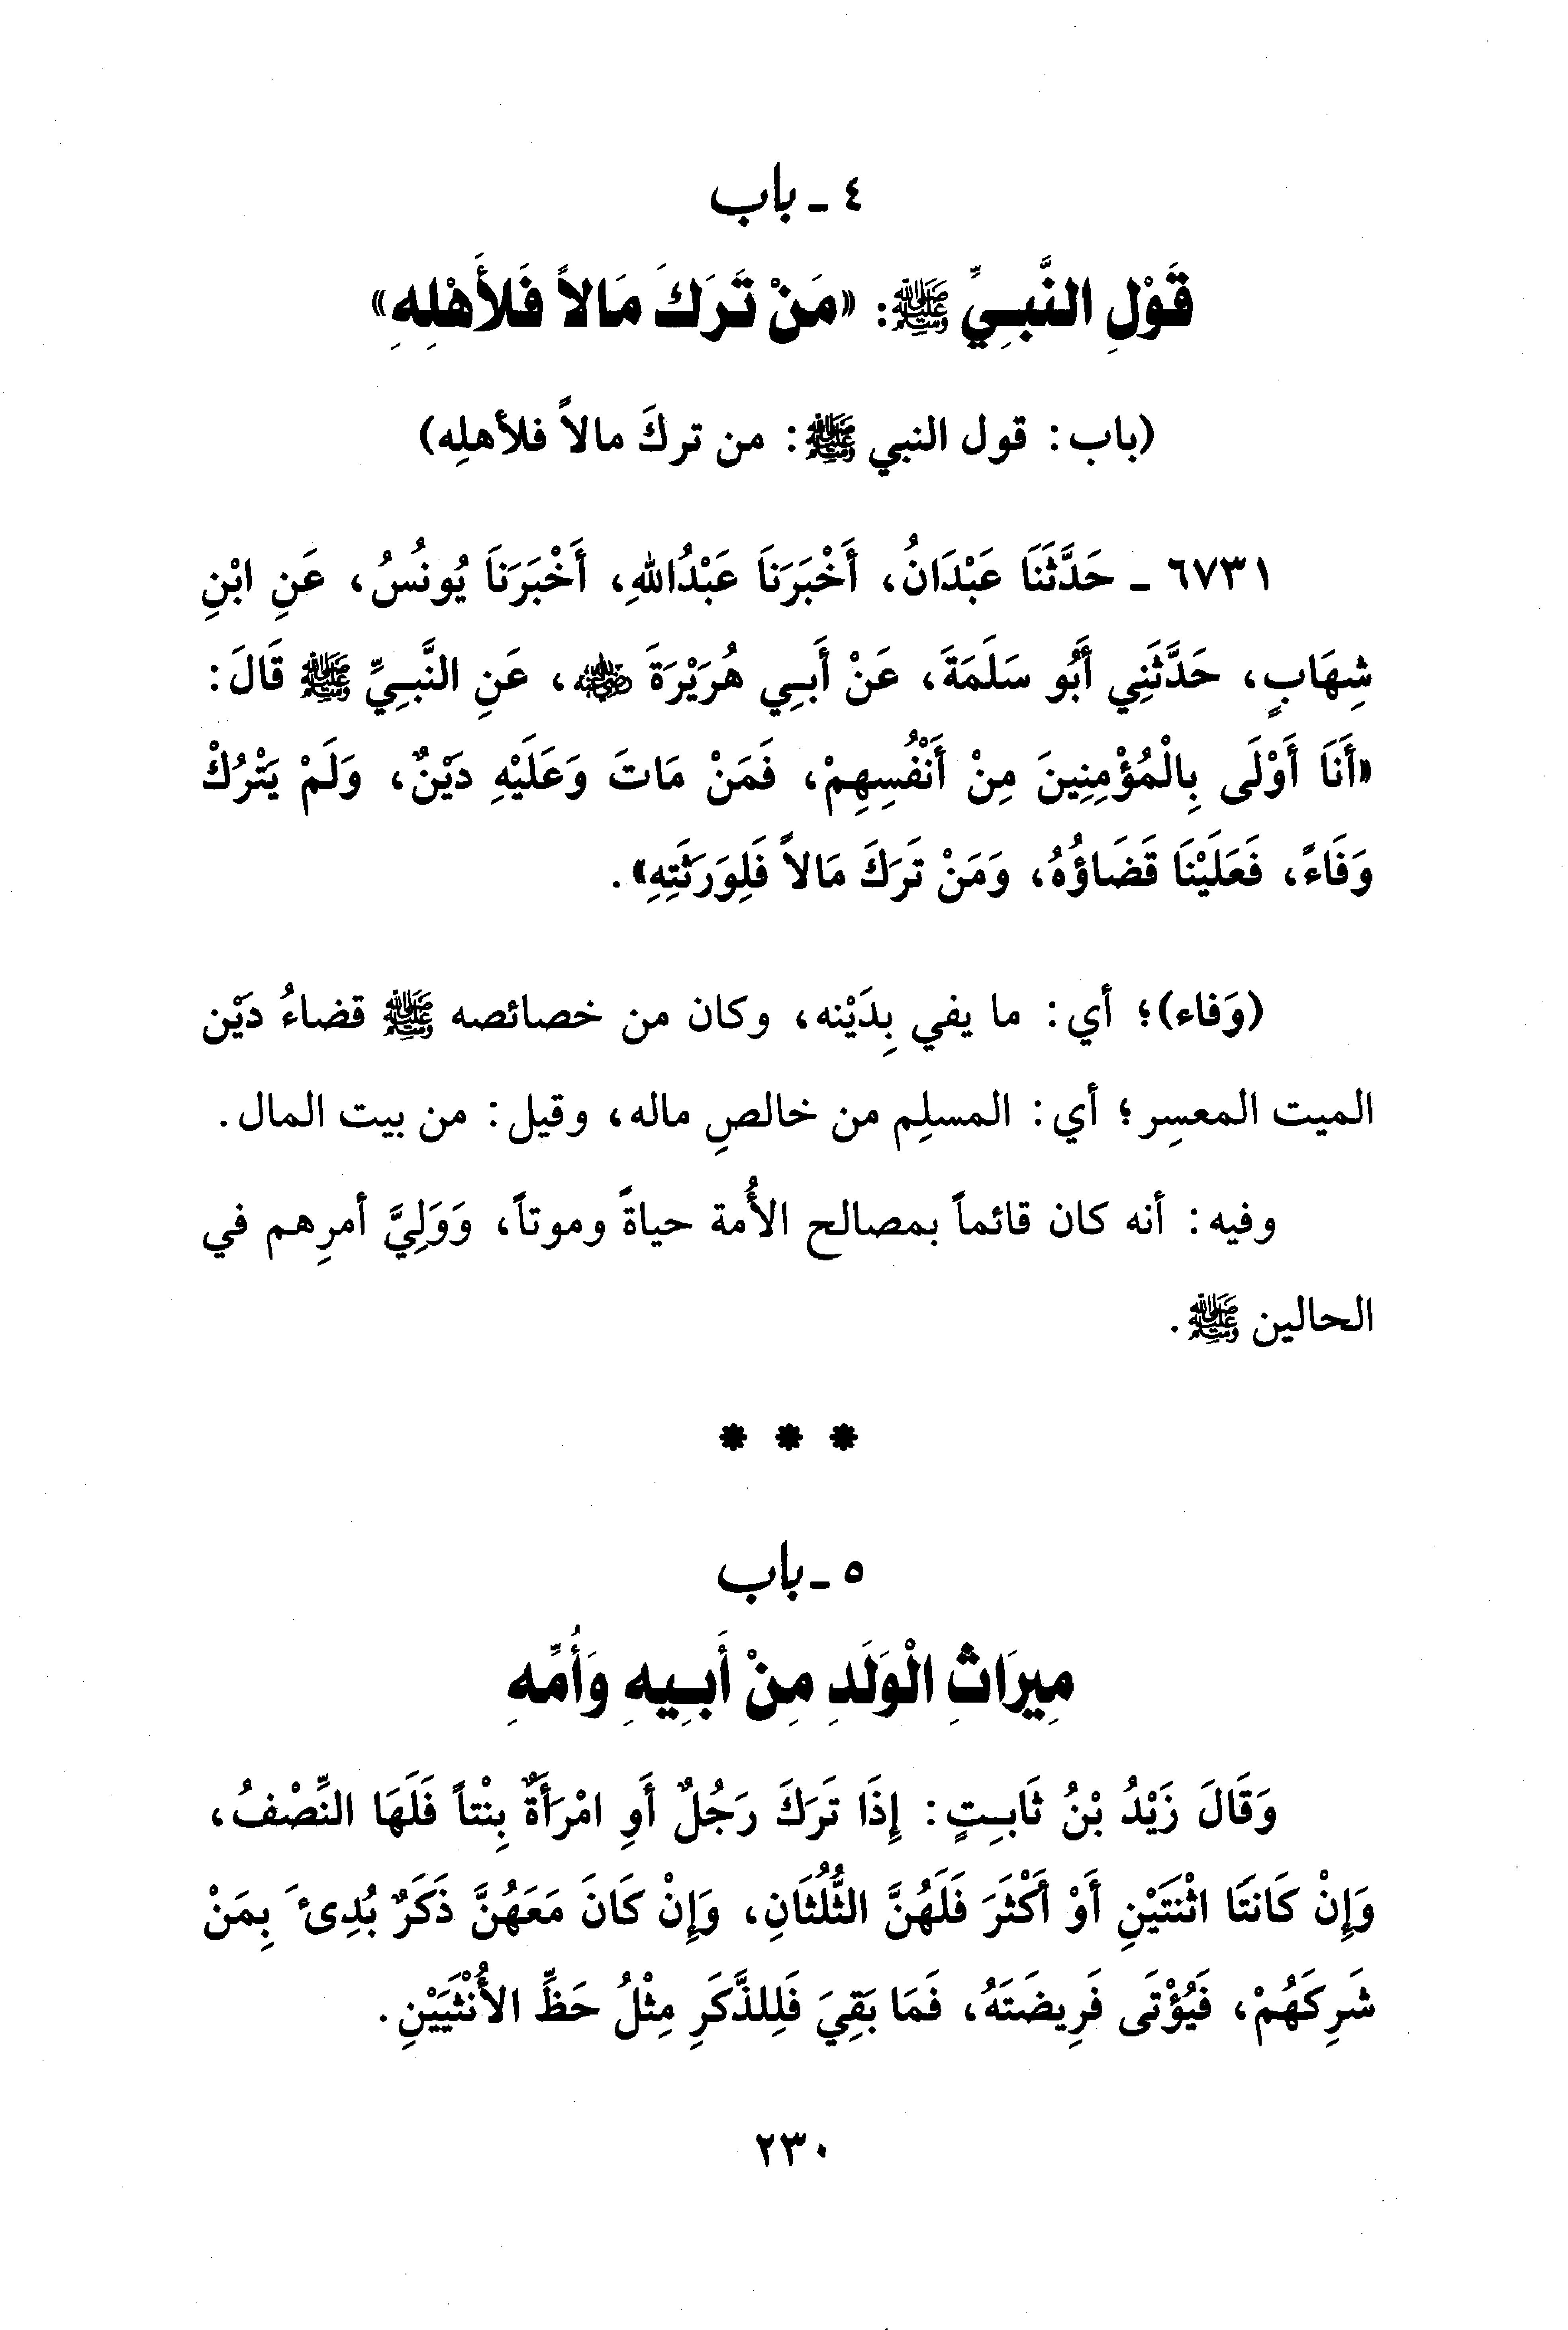 ٤ - باب
قَوْلِ النَّبِيِّ ﷺ: «مَنْ تَرَكَ مَالاً فَلأَهْلِهِ»
(باب: قول النبي ﷺ: من تركَ مالاً فلأهلِه)
٦٧٣١ - حَدَّثَنَا عَبْدَانُ، أَخْبَرَنَا عَبْدُاللهِ، أَخْبَرَنَا يُونُسُ، عَنِ ابْنِ
شِهَابٍ، حَدَّثَنِي أَبُو سَلَمَةَ، عَنْ أَبِي هُرَيْرَةَ رضي الله عنه، عَنِ النَّبِيِّ ﷺ قَالَ:
«أَنَا أَوْلَى بِالْمُؤْمِنِينَ مِنْ أَنْفُسِهِمْ، فَمَنْ مَاتَ وَعَلَيْهِ دَيْنٌ، وَلَمْ يَتْرُكْ
وَفَاءً، فَعَلَيْنَا قَضَاؤُهُ، وَمَنْ تَرَكَ مَالاً فَلِوَرَثَتِهِ».
(وَفاء)؛ أي: ما يفي بِدَيْنه، وكان من خصائصه ﷺ قضاءُ دَيْن
الميت المعسِر؛ أي: المسلِم من خالصِ ماله، وقيل: من بيت المال.
وفيه: أنه كان قائماً بمصالح الأُمة حياةً وموتاً، وَوَلِيَّ أمرِهم في
الحالين ﷺ.
* * *
٥ - باب
مِيرَاثِ الْوَلَدِ مِنْ أَبِيهِ وَأُمِّهِ
وَقَالَ زَيْدُ بْنُ ثَابِتٍ: إِذَا تَرَكَ رَجُلٌ أَوِ امْرَأَةٌ بِنْتاً فَلَهَا النِّصْفُ،
وَإِنْ كَانَتَا اثْنَتَيْنِ أَوْ أَكْثَرَ فَلَهُنَّ الثُّلُثَانِ، وَإِنْ كَانَ مَعَهُنَّ ذَكَرٌ بُدِئَ بِمَنْ
شَرِكَهُمْ، فَيُؤْتَى فَرِيضَتَهُ، فَمَا بَقِيَ فَلِلذَّكَرِ مِثْلُ حَظِّ الأُنْثَيَيْنِ.
٢٣٠